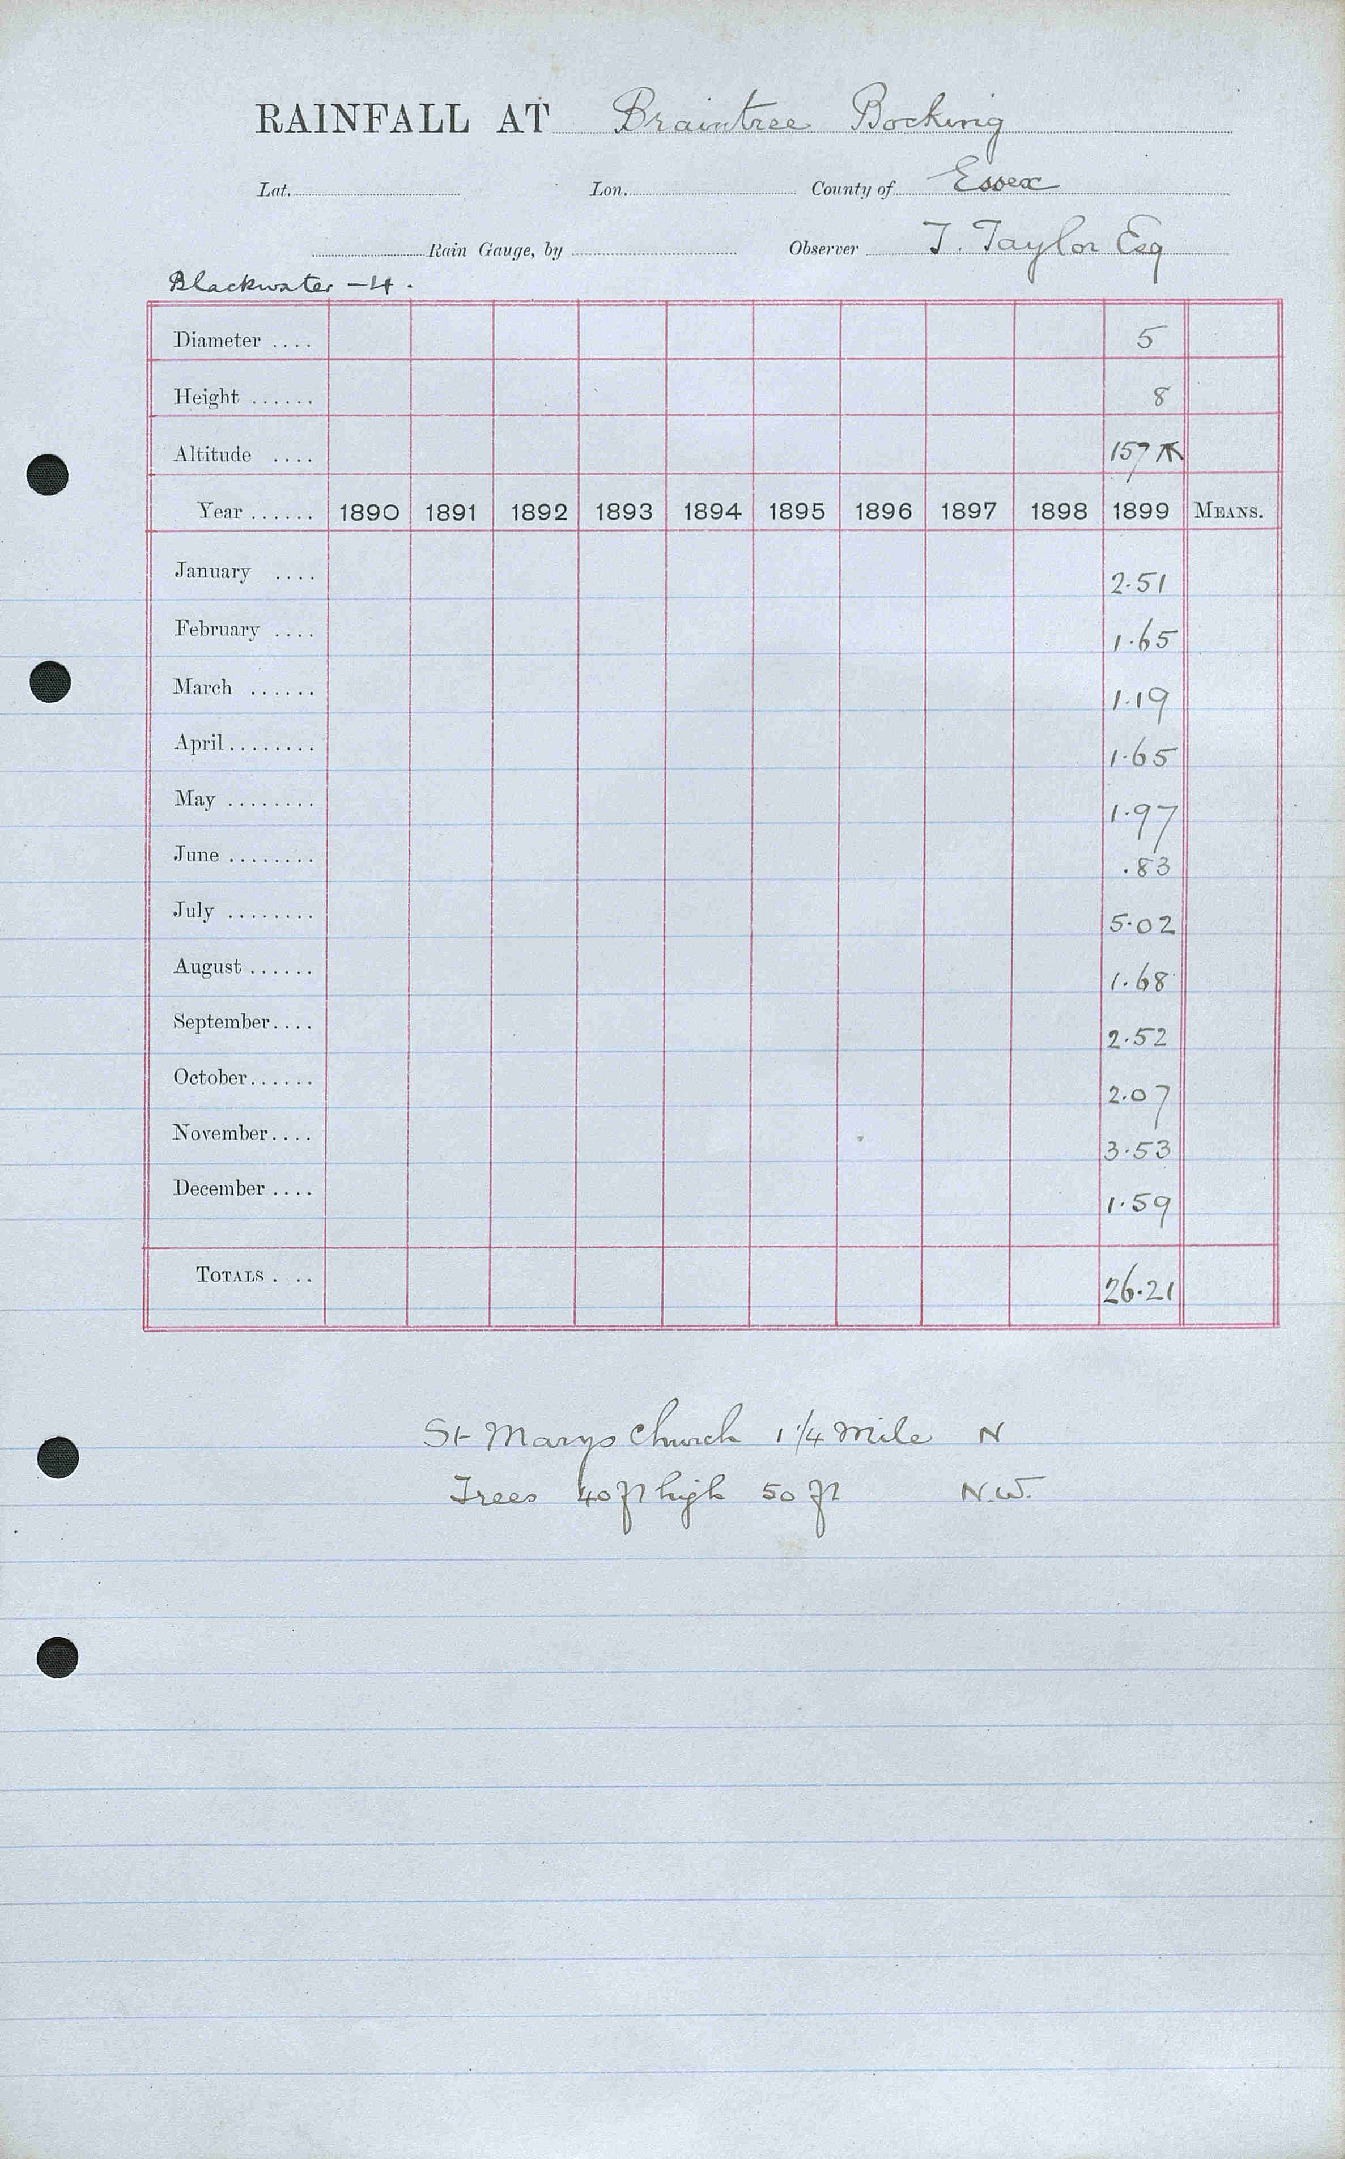 RAINFALL AT Braintree Bocking
Lat. Lon. County of Essex
Rain Gauge, by Observer T. Taylor Esq
Blackwater – 4.
Diameter .... 5
Height ...... 8
Altitude .... 157
Year ...... 1890 1891 1892 1893 1894 1895 1896 1897 1898 1899 MEANS.
January .... 2.51
February .... 1.65
March ...... 1.19
April ........ 1.65
May ........ 1.97
June ........ .83
July ........ 5.02
August ...... 1.68
September.... 2.52
October...... 2.07
November.... 3.53
December .... 1.59
TOTALS . .. 26.21
St Marys Church 1 1/4 mile N
Trees 40 ft high 50 ft N.W.